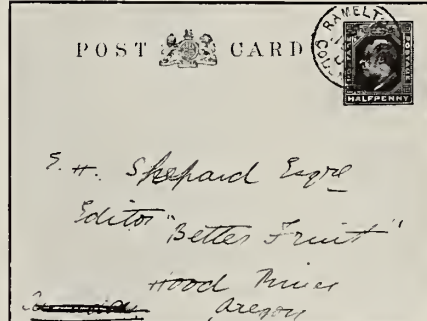 POST CARD
RAMELT
POSTAGE POSTAGE
HALFPENNY
E. H. Shepard Esqre
Editor "Better Fruit"
Hood River
Oregon